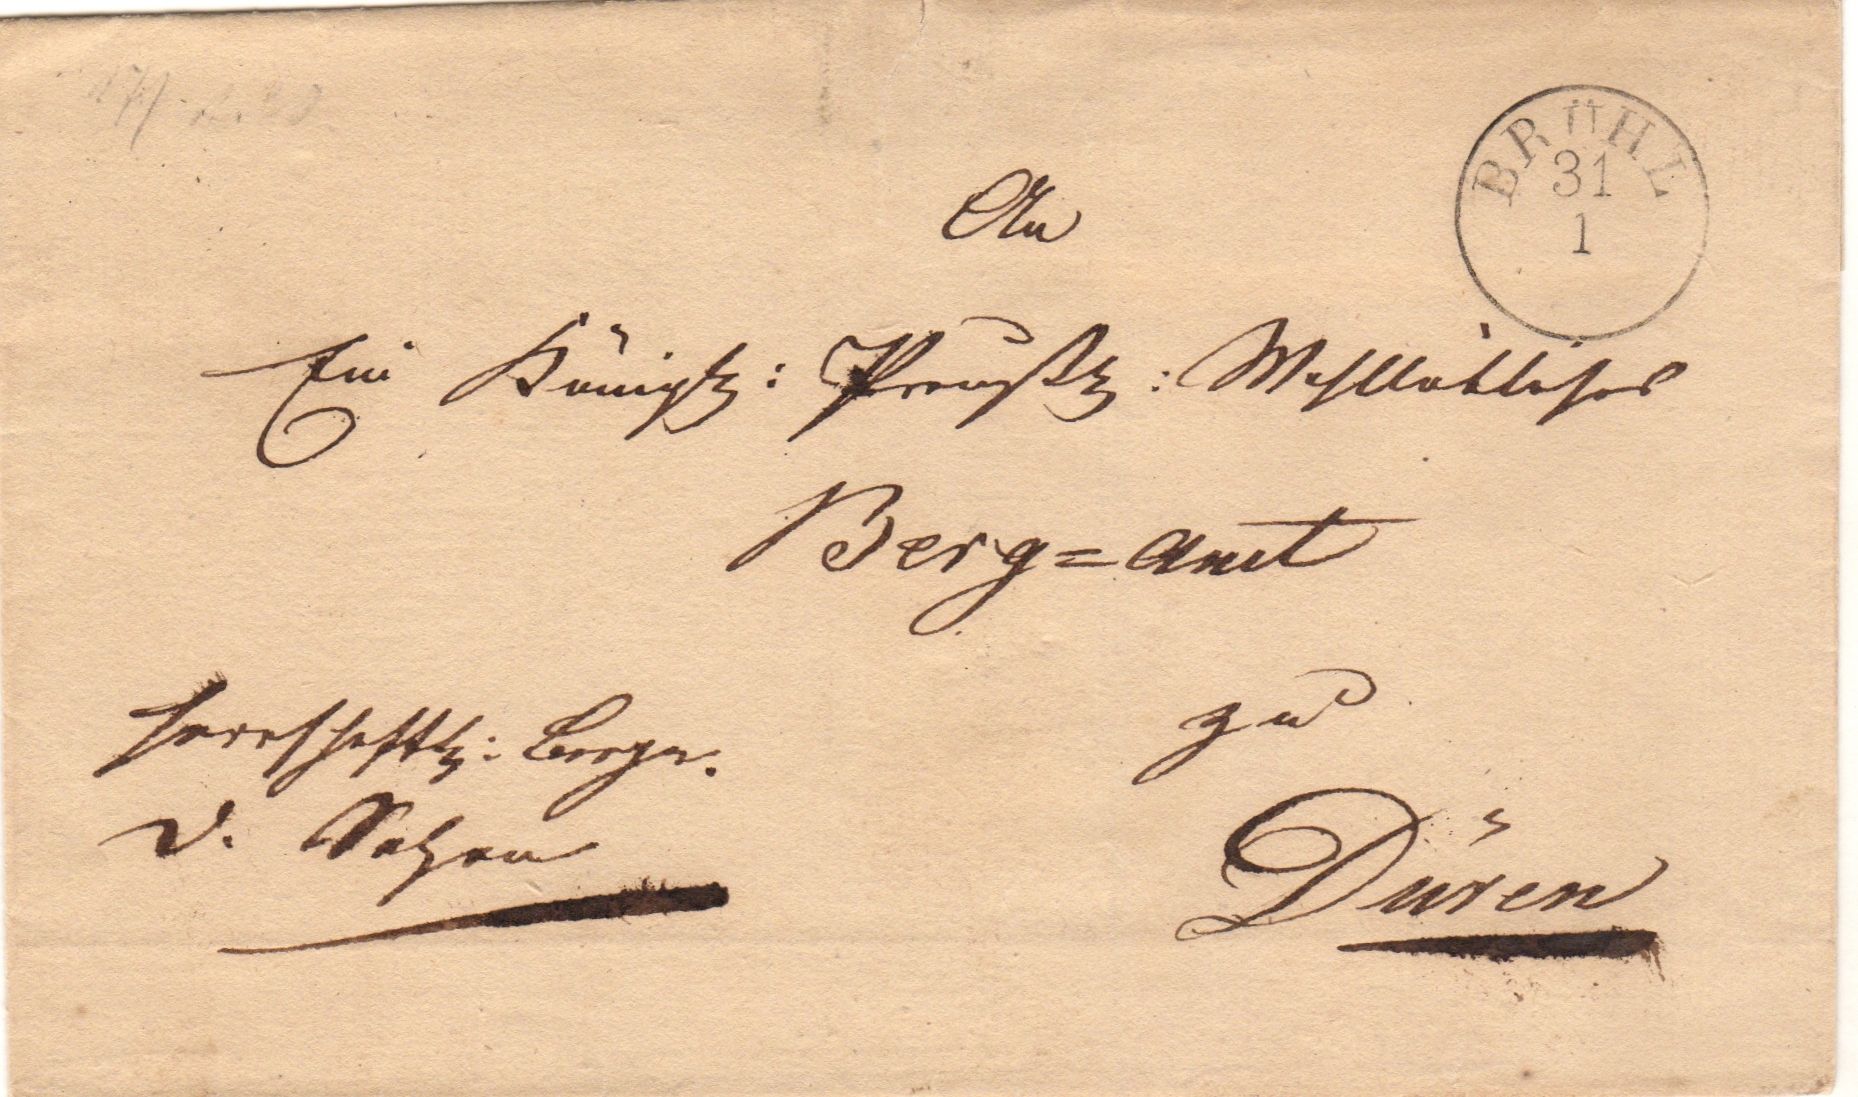 BRÜHL
31
1
An
Ein Königl: Preußl: Wohllöbliches
Berg=amt
zu
Düren
herrschaftl: Bergw.
v.